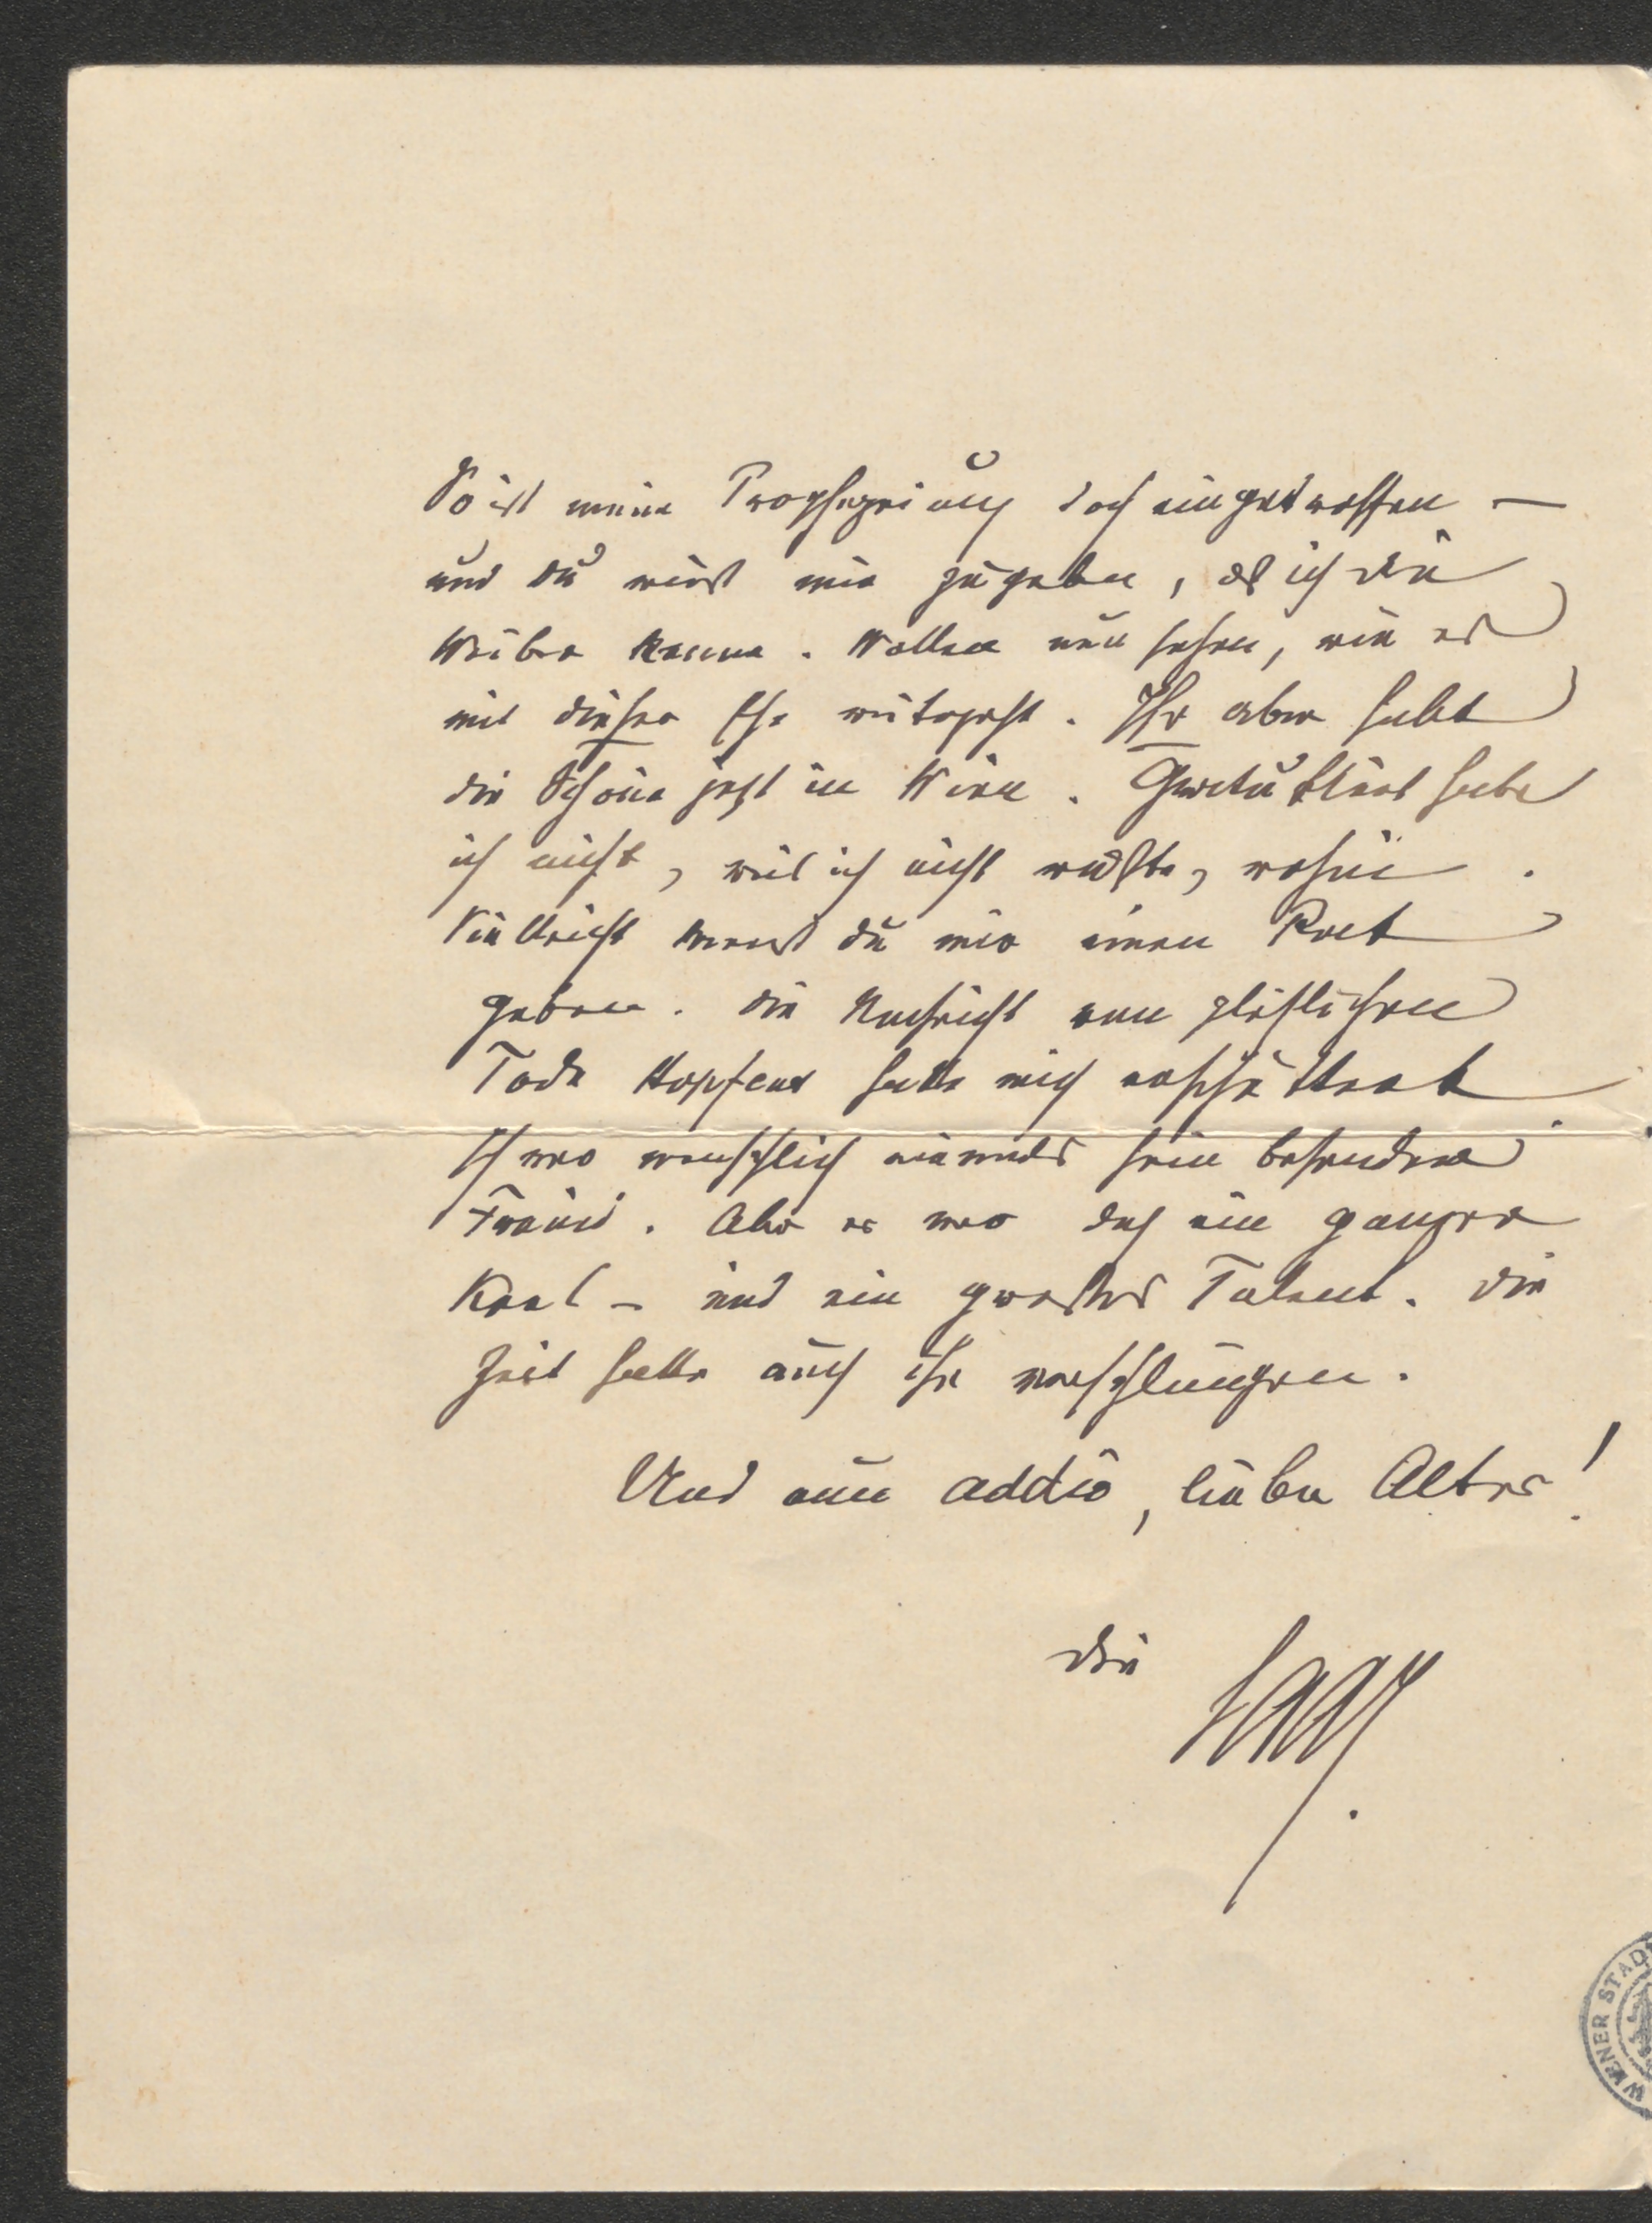 So ist meine Prophezeiung doch eingetroffen —
und du wirst mir zugeben, daß ich die
Weiber kenne. Wollen nun sehen, wie es
mit dieser Ehe weitergeht. Ihr aber habt
die Schöne jetzt in Wien. Gratulirt habe
ich nicht, weil ich nicht wußte, wohin.
Vielleicht kannst du mir einen Rat
geben. Die Nachricht vom plötzlichen
Tode Hopfens hatte mich erschüttert
Ich war menschlich niemals sein besonderer
Freund. Aber er war doch ein ganzer
Kerl – und ein großes Talent. Die
Zeit hatte auch ihn verschlungen.
Und nun addio, lieber Alter!
Dein
Saar.
WIENER STAD